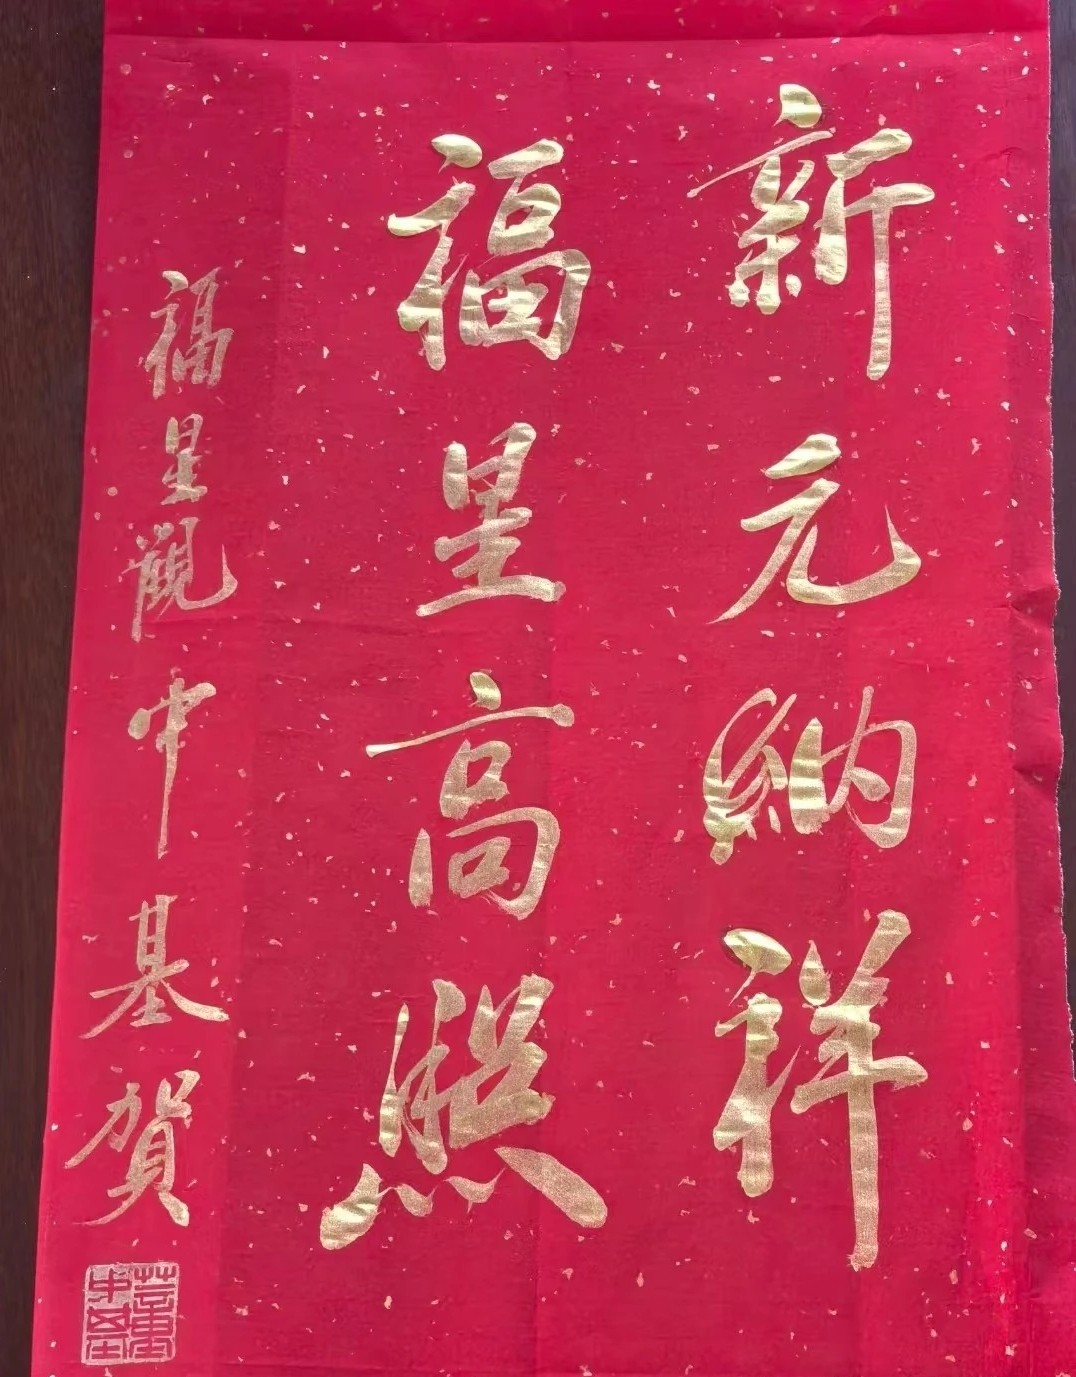 新元納祥
福星高照
福星觀中基賀